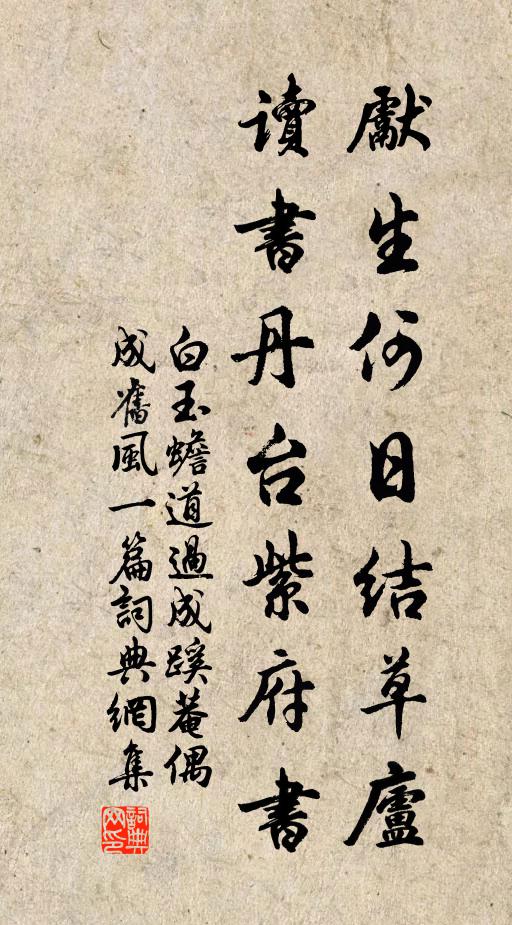 獻生何日結草廬
讀書丹台紫府書
白玉蟾道過成蹊菴偶
成舊風一篇詞典網集
詞典
网印